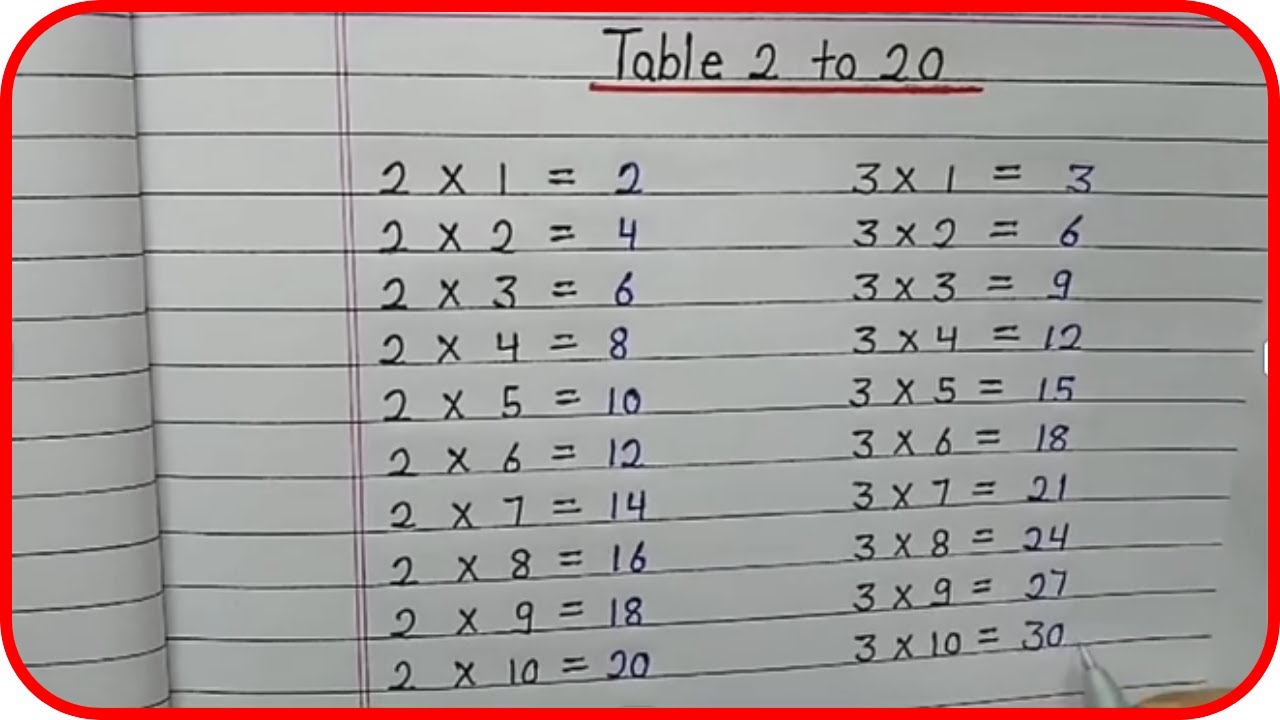 Table 2 to 20
2 x 1 = 2
2 x 2 = 4
2 x 3 = 6
2 x 4 = 8
2 x 5 = 10
2 x 6 = 12
2 x 7 = 14
2 x 8 = 16
2 x 9 = 18
2 x 10 = 20
3 x 1 = 3
3 x 2 = 6
3 x 3 = 9
3 x 4 = 12
3 x 5 = 15
3 x 6 = 18
3 x 7 = 21
3 x 8 = 24
3 x 9 = 27
3 x 10 = 30